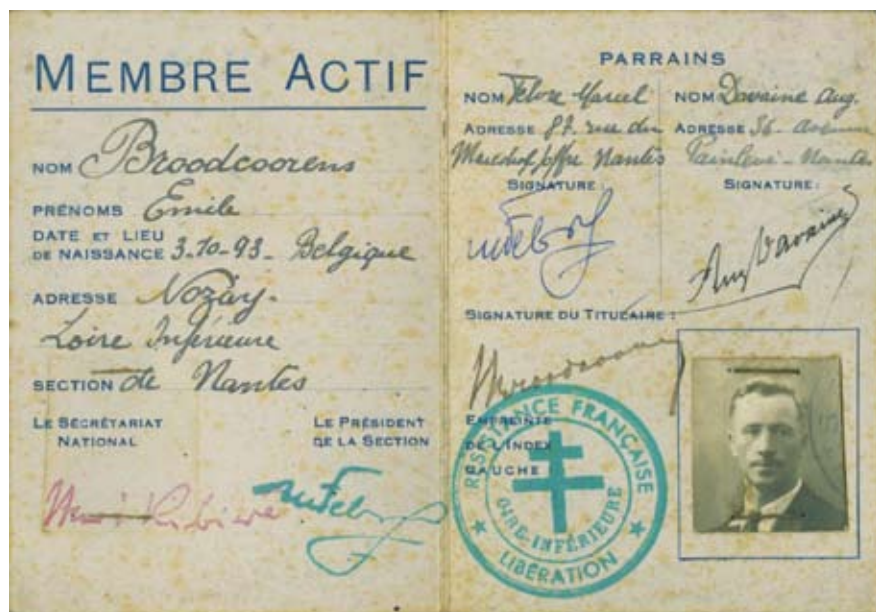 MEMBRE ACTIF
NOM Broodcoorens
PRÉNOMS Emile
DATE ET LIEU
DE NAISSANCE 3-10-93- Belgique
ADRESSE Nozay-
Loire Inférieure
SECTION de Nantes
LE SECRÉTARIAT
NATIONAL
LE PRÉSIDENT
DE LA SECTION
PARRAINS
NOM Marcel
ADRESSE 87 rue du
Maréchal Joffre Nantes
SIGNATURE :
NOM Davaine Aug.
ADRESSE 36 avenue
Painlevé - Nantes
SIGNATURE :
Aug Davaine
SIGNATURE DU TITULAIRE :
EMPREINTE
DE L'INDEX
GAUCHE
RESISTANCE FRANÇAISE
LOIRE-INFÉRIEURE
LIBÉRATION